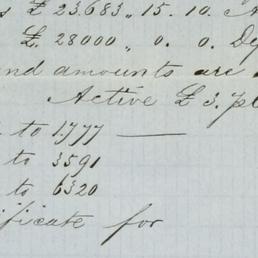 £ 23.683,, 15. 10.
£. 28000,, 0. 0. De
and amounts are
Active £ 3. p
to 1.777 ———
to 3591
to 6320
ificate for